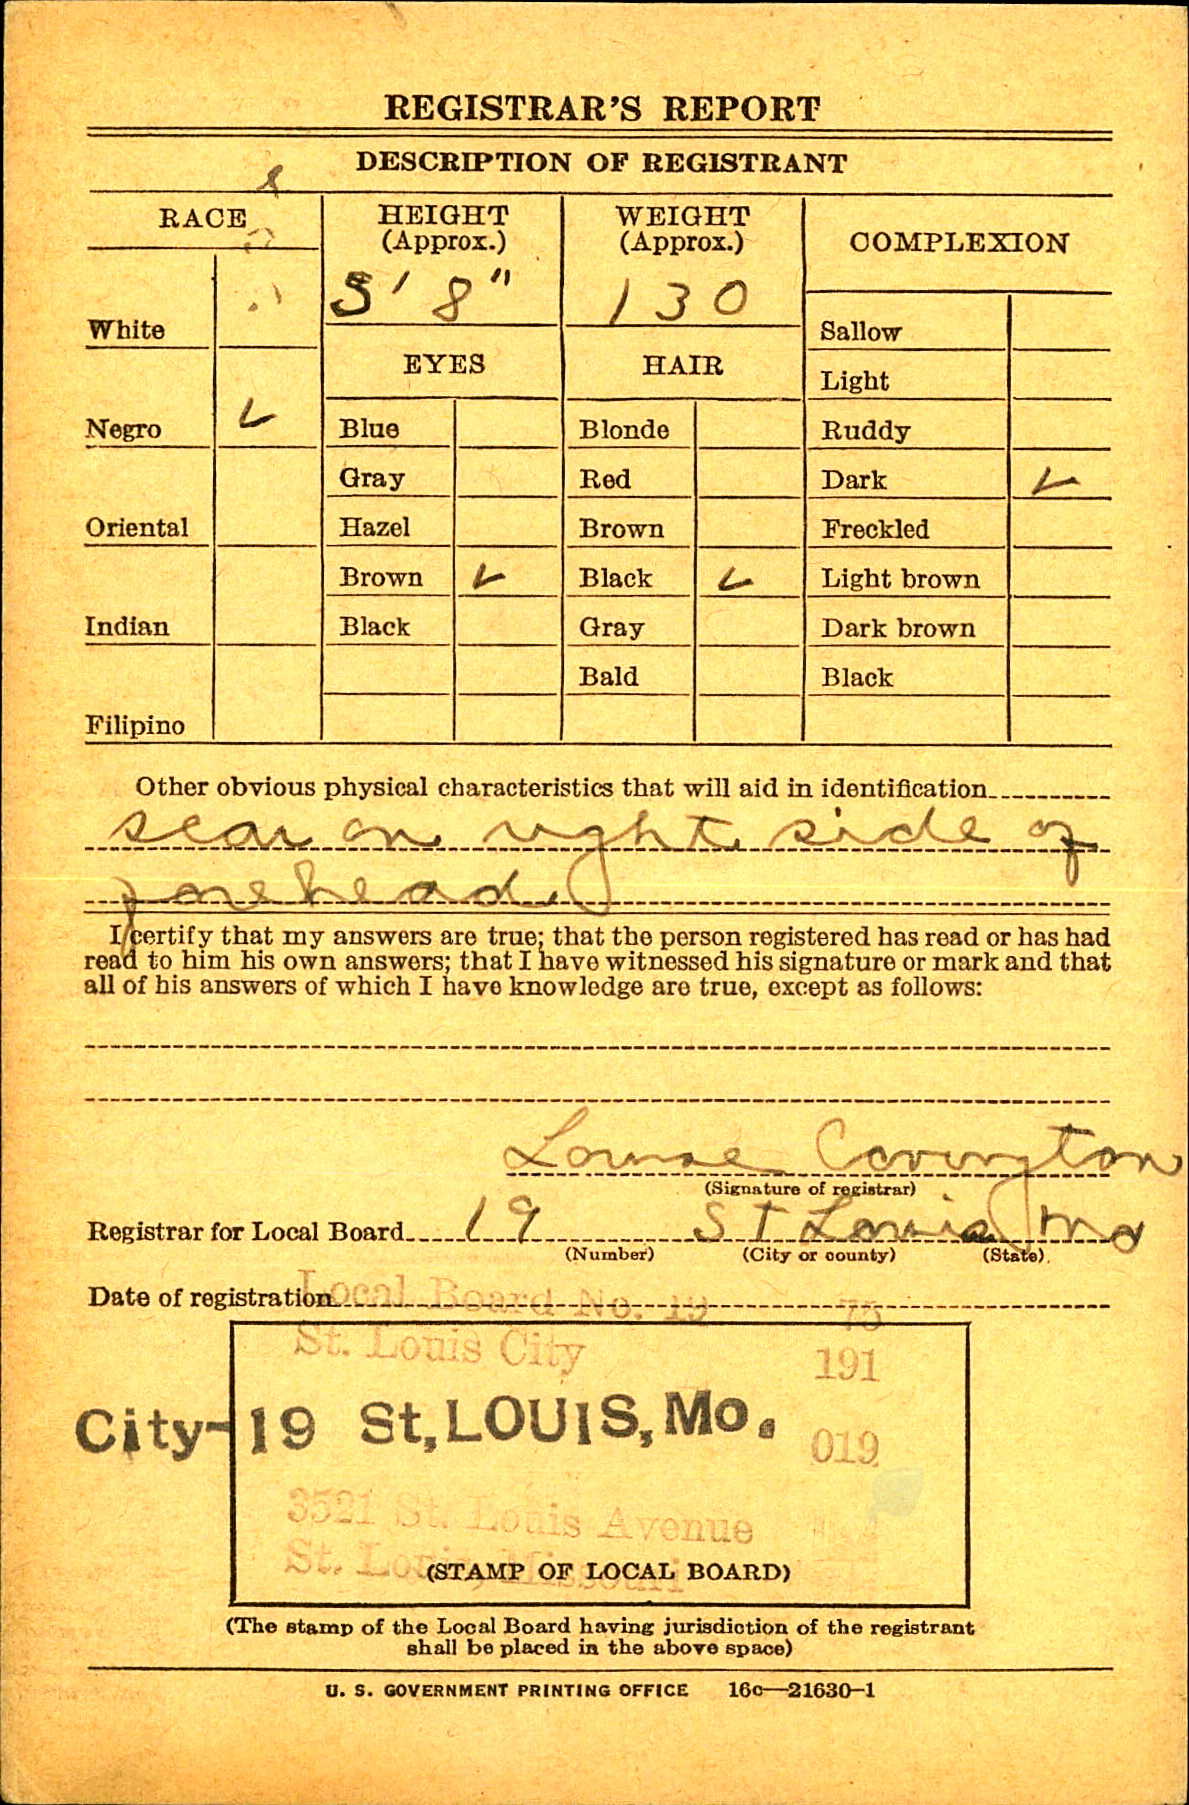 REGISTRAR'S REPORT
DESCRIPTION OF REGISTRANT
RACE
HEIGHT
(Approx.)
5' 8"
WEIGHT
(Approx.)
130
COMPLEXION
White
Negro ✓
Oriental
Indian
Filipino
EYES
Blue
Gray
Hazel
Brown ✓
Black
HAIR
Blonde
Red
Brown
Black ✓
Gray
Bald
Sallow
Light
Ruddy
Dark ✓
Freckled
Light brown
Dark brown
Black
Other obvious physical characteristics that will aid in identification
scar on right side of
forehead
I certify that my answers are true; that the person registered has read or has had
read to him his own answers; that I have witnessed his signature or mark and that
all of his answers of which I have knowledge are true, except as follows:
Louise Covington
(Signature of registrar)
Registrar for Local Board 19 St Louis Mo
(Number) (City or county) (State)
Date of registration
Local Board No. 19 75
St. Louis City 191
City-19 St, LOUIS, Mo.
019
3521 St. Louis Avenue
St. Louis, Missouri
(STAMP OF LOCAL BOARD)
(The stamp of the Local Board having jurisdiction of the registrant
shall be placed in the above space)
U. S. GOVERNMENT PRINTING OFFICE 16c—21630-1